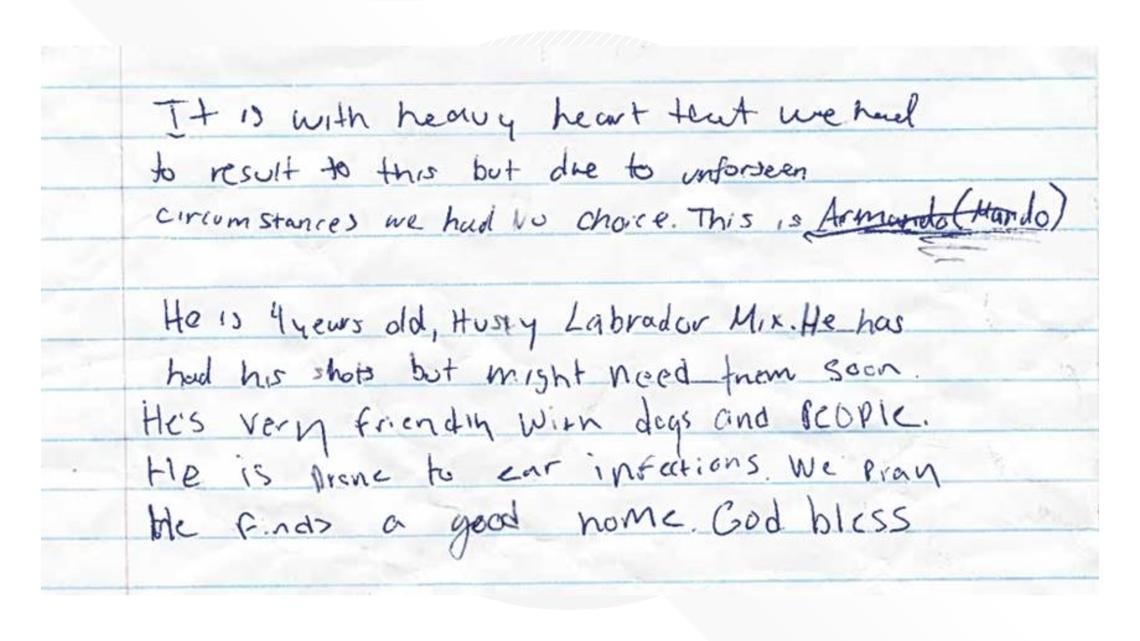 It is with heavy heart that we had
to result to this but due to unforseen
circumstances we had no choice. This is Armando (Mando)
He is 4 years old, Husky Labrador Mix. He has
had his shots but might need them soon.
He's very friendly with dogs and people.
He is prone to ear infections. We pray
He finds a good home. God bless